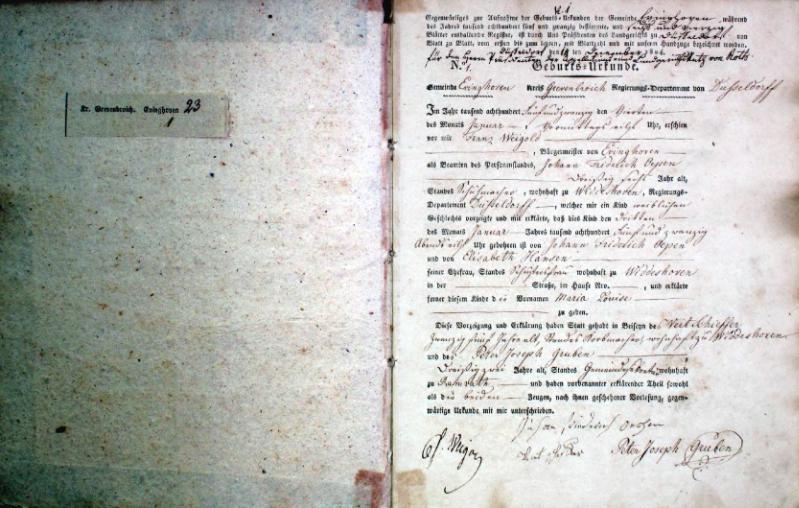 Kr. Grevenbroich. Evinghoven 23
1
Gegenwärtiges zur Aufnahme der Geburts-Urkunden der Gemeinde Evinghoven, während
des Jahres tausend achthundert fünf und zwanzig bestimmte, und
Blätter enthaltende Register, ist durch Uns Präsidenten des Landgerichts zu Düsseldorf von
Blatt zu Blatt, vom ersten bis zum letzten, mit Blattzahl und mit unserm Handzuge bezeichnet worden.
Düsseldorf den
für den Herrn Präsidenten von Voß
N. 1. Geburts-Urkunde.
Gemeinde Evinghoven Kreis Grevenbroich Regierungs-Departement von Düsseldorff
Im Jahr tausend achthundert fünfundzwanzig den Vierten
des Monats Januar Vormittags eilf Uhr, erschien
vor mir Franz Weigold
, Bürgermeister von Evinghoven
als Beamten des Personenstandes, Johann Friderich Oepen
Dreißig sechs Jahr alt,
Standes Schuhmacher, wohnhaft zu Widdeshoven, Regierungs-
Departement Düsseldorff, welcher mir ein Kind weiblichen
Geschlechts vorzeigte und mir erklärte, daß dies Kind den Dritten
des Monats Januar Jahres tausend achthundert Fünfundzwanzig
Abends eilf Uhr gebohren ist von Johann Friderich Oepen
und von Elisabeth Hansen
seiner Ehefrau, Standes wohnhaft zu Widdeshoven
in der Straße, im Hause Nro. , und erklärte
ferner diesem Kinde den Vornamen Maria Louise
zu geben.
Diese Vorzeigung und Erklärung haben Statt gehabt in Beiseyn des Veit Schieffer
Zwanzig fünf Jahre alt, Standes Korbmacher, wohnhaft zu Widdeshoven
und des Peter Joseph Gruben
Dreißig zwei Jahre alt, Standes wohnhaft
zu Ramrath und haben vorbenannter erklärender Theil sowohl
als die beiden Zeugen, nach ihnen geschehener Vorlesung, gegen-
wärtige Urkunde mit mir unterschrieben.
Johan Friederich
Peter Joseph Gruben